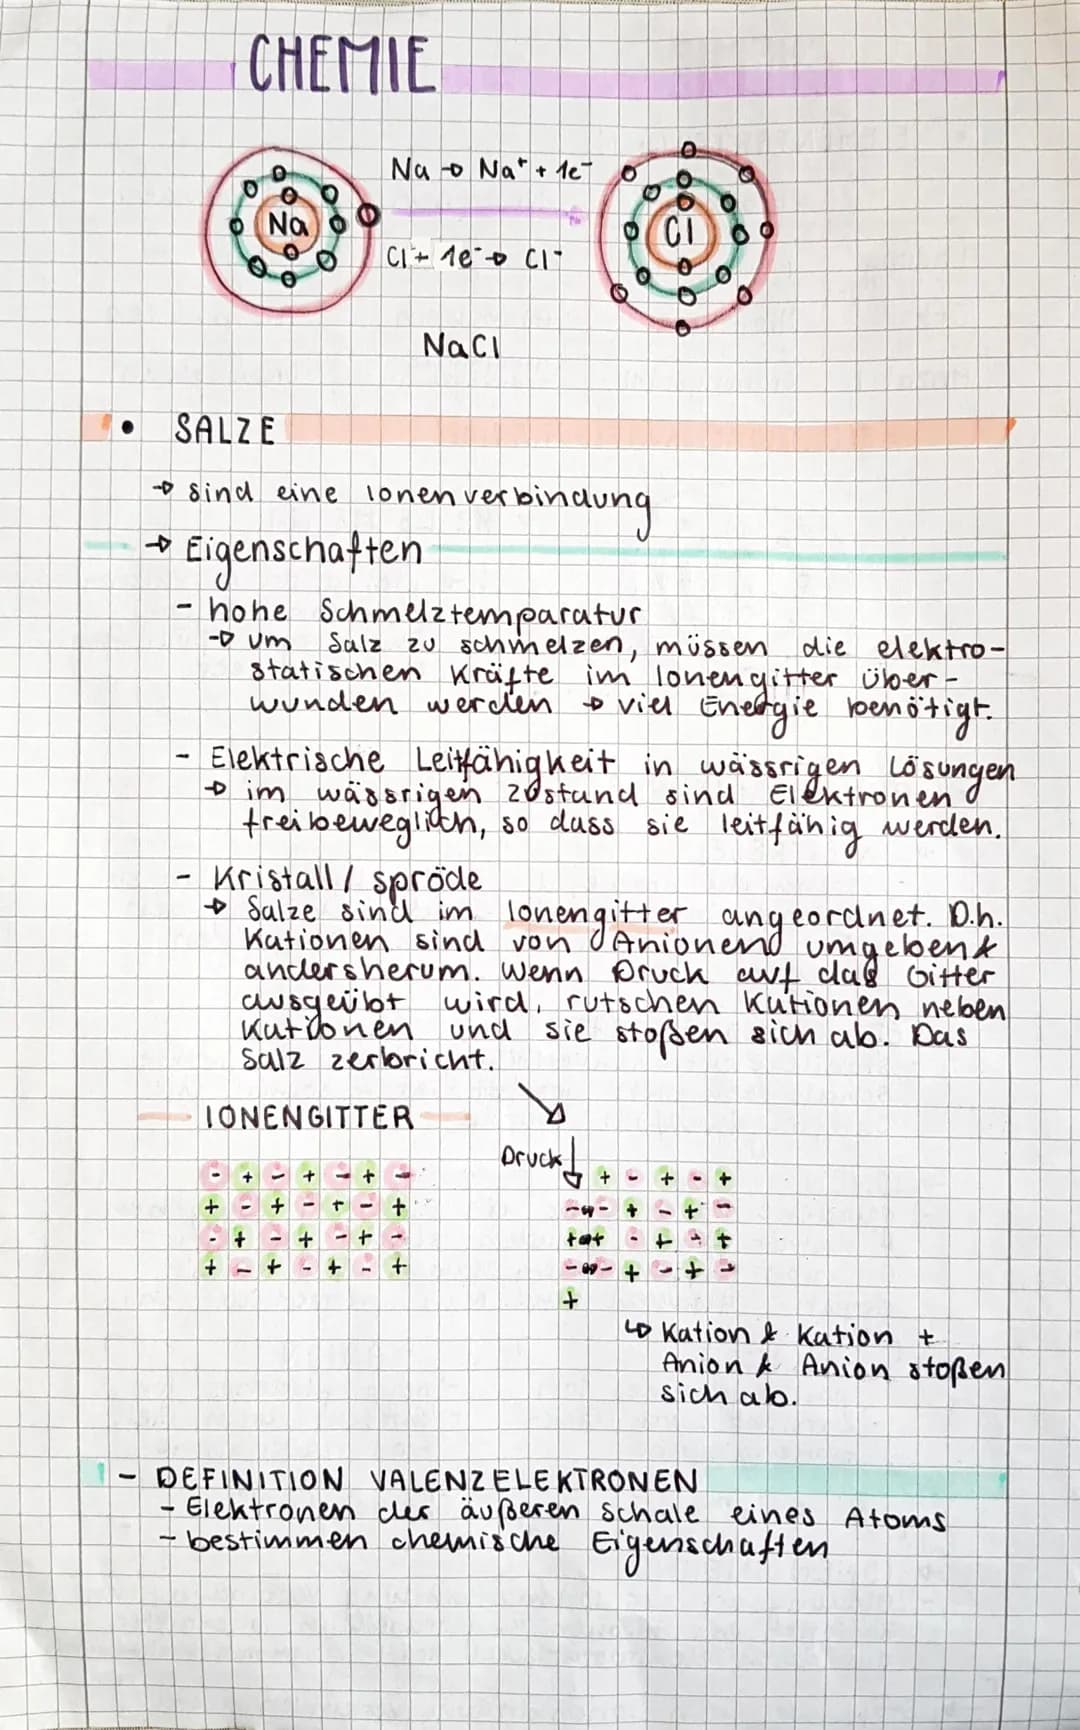 CHEMIE
Na → Na⁺ + 1e⁻
Na
Cl
Cl + 1e⁻ → Cl⁻
NaCl
• SALZE
→ sind eine Ionenverbindung
→ Eigenschaften
- hohe Schmelztemparatur
→ um Salz zu schmelzen, müssen die elektro-
statischen Kräfte im Ionengitter über-
wunden werden → viel Energie benötigt.
- Elektrische Leitfähigkeit in wässrigen Lösungen
→ im wässrigen Zustand sind Elektronen
frei beweglich, so dass sie leitfähig werden.
- Kristall / spröde
→ Salze sind im Ionengitter angeordnet. D.h.
Kationen sind von Anionen umgeben &
andersherum. Wenn Druck auf das Gitter
ausgeübt wird, rutschen Kationen neben
Kationen und sie stoßen sich ab. Das
Salz zerbricht.
IONENGITTER
Druck ↓
- + - + - + -
+ - + - + - +
- + - + - + -
+ - + - + - +
+ - + - +
- ↔ - + - + -
+ ↔ + - + - +
- ↔ - + - + -
+
↳ Kation & Kation +
Anion & Anion stoßen
sich ab.
- DEFINITION VALENZELEKTRONEN
- Elektronen der äußeren Schale eines Atoms
- bestimmen chemische Eigenschaften